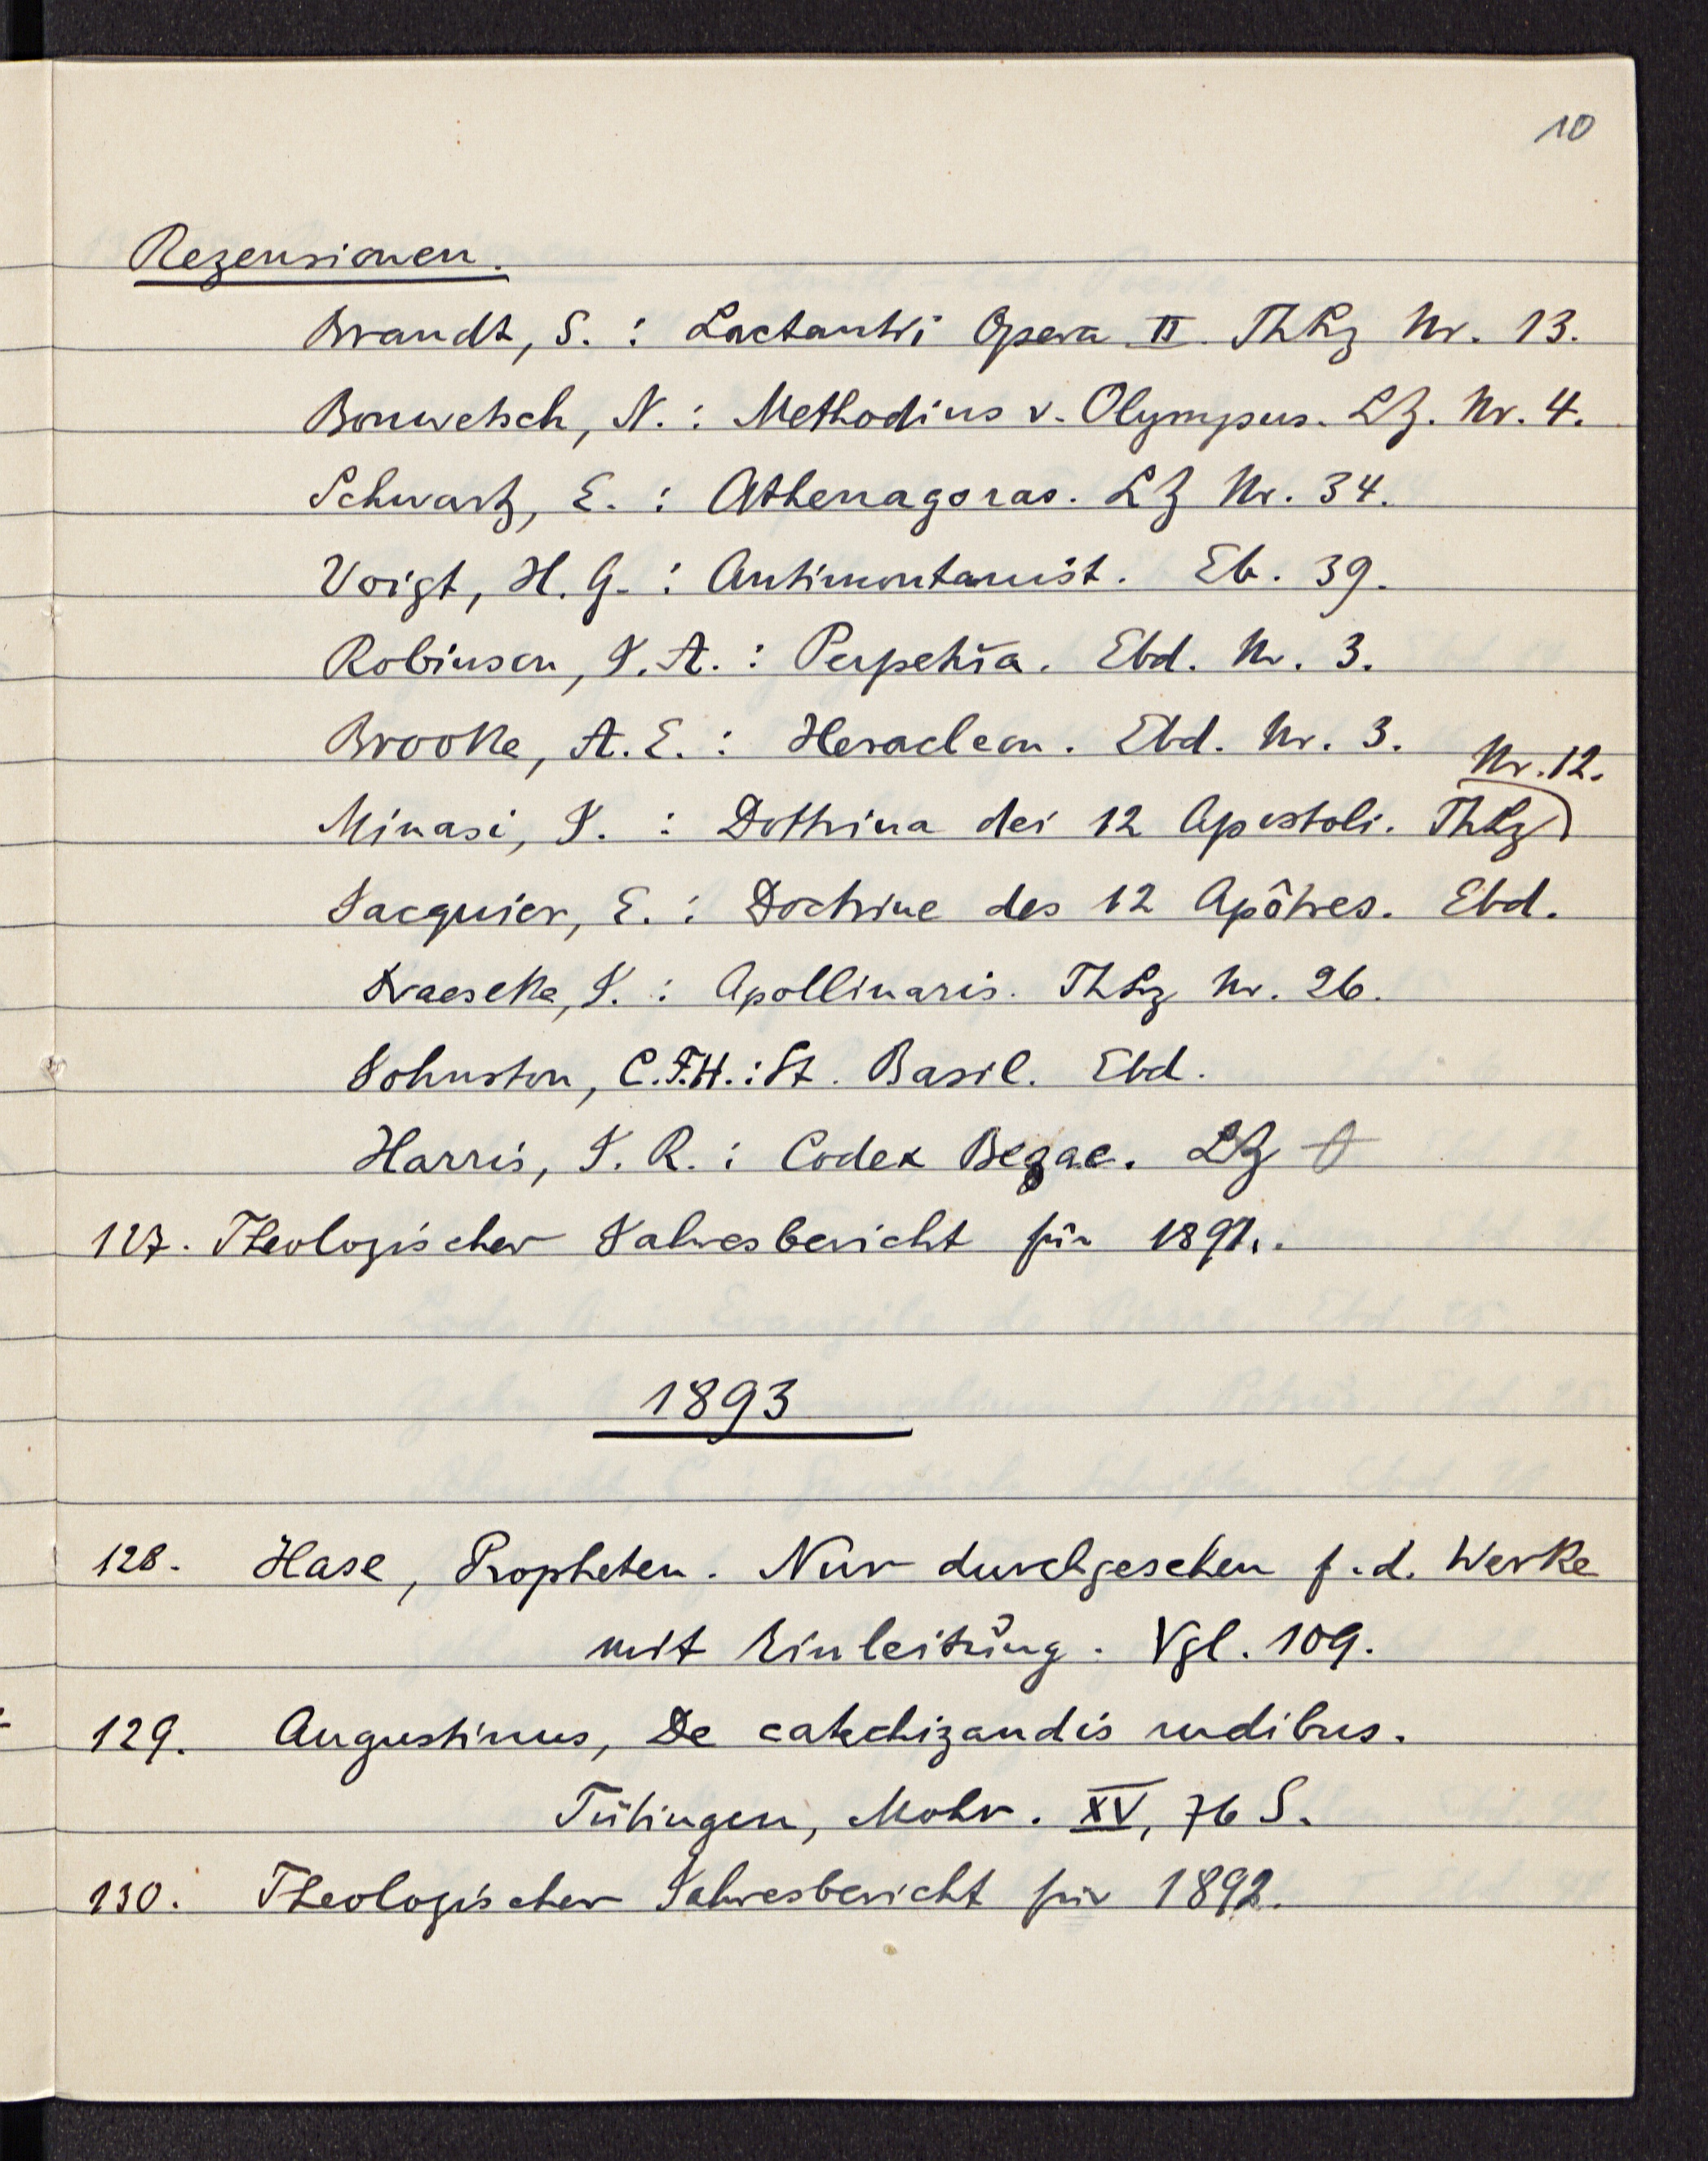 10
Rezensionen.
Brandt, S. : Lactanti Opera II. ThLz Nr. 13.
Bonwetsch, N. : Methodius v. Olympus. LZ. Nr. 4.
Schwartz, E. : Athenagoras. LZ Nr. 34.
Voigt, H. G. : Antimontanist. Eb. 39.
Robinson, J. A. : Perpetua. Ebd. Nr. 3.
Brooke, A. E. : Heracleon. Ebd. Nr. 3.
Nr. 12.
Minasi, J. : Dottrina dei 12 Apostoli. ThLz
Jacquier, E. : Doctrine des 12 Apôtres. Ebd.
Draeseke, J. : Apollinaris. ThLz Nr. 26.
Johnston, C.F.H. : St. Basil. Ebd.
Harris, J. R. : Codex Bezae. LZ
127. Theologischer Jahresbericht für 1891.
1893
128. Hase, Propheten. Nur durchgesehen f. d. Werke
mit Einleitung. Vgl. 109.
129. Augustinus, De catechizandis rudibus.
Tübingen, Mohr. XV, 76 S.
130. Theologischer Jahresbericht für 1892.